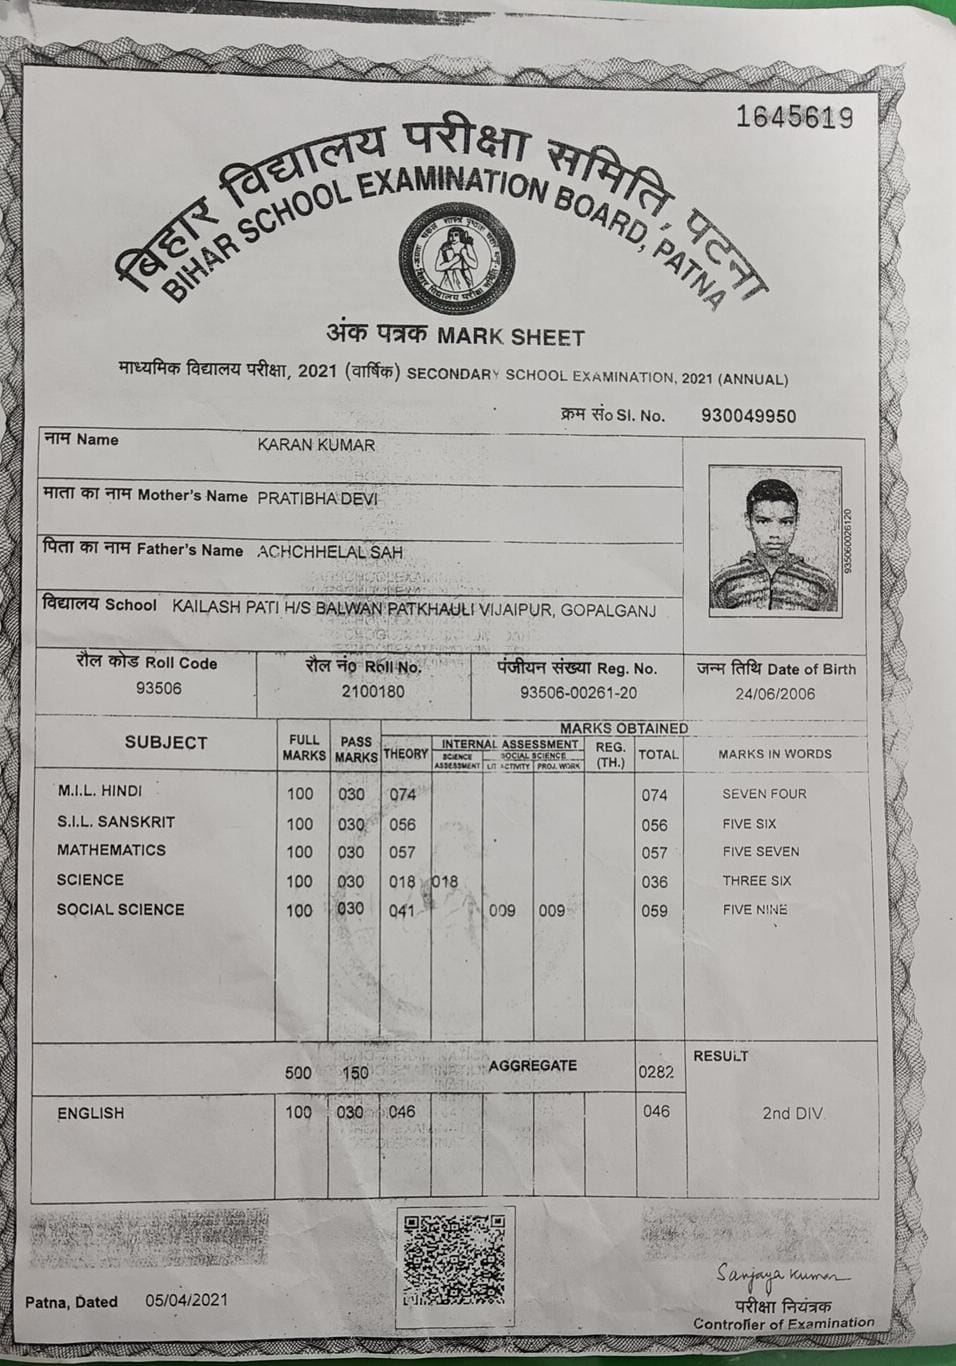 1645619
बिहार विद्यालय परीक्षा समिति, पटना
BIHAR SCHOOL EXAMINATION BOARD, PATNA
अंक पत्रक MARK SHEET
माध्यमिक विद्यालय परीक्षा, 2021 (वार्षिक) SECONDARY SCHOOL EXAMINATION, 2021 (ANNUAL)
क्रम सं० SI. No. 930049950
नाम Name KARAN KUMAR
माता का नाम Mother's Name PRATIBHA DEVI
पिता का नाम Father's Name ACHCHHELAL SAH
935060026120
विद्यालय School KAILASH PATI H/S BALWAN PATKHAULI VIJAIPUR, GOPALGANJ
रौल कोड Roll Code रौल नं० Roll No. पंजीयन संख्या Reg. No. जन्म तिथि Date of Birth
93506 2100180 93506-00261-20 24/06/2006
MARKS OBTAINED
SUBJECT FULL MARKS PASS MARKS THEORY INTERNAL ASSESSMENT REG. (TH.) TOTAL MARKS IN WORDS
SCIENCE ASSESSMENT SOCIAL SCIENCE
LIT ACTIVITY PROJ. WORK
M.I.L. HINDI 100 030 074 074 SEVEN FOUR
S.I.L. SANSKRIT 100 030 056 056 FIVE SIX
MATHEMATICS 100 030 057 057 FIVE SEVEN
SCIENCE 100 030 018 018 036 THREE SIX
SOCIAL SCIENCE 100 030 041 009 009 059 FIVE NINE
500 150 AGGREGATE 0282 RESULT
ENGLISH 100 030 046 046 2nd DIV.
Sanjaya Kumar
Patna, Dated 05/04/2021
परीक्षा नियंत्रक
Controller of Examination